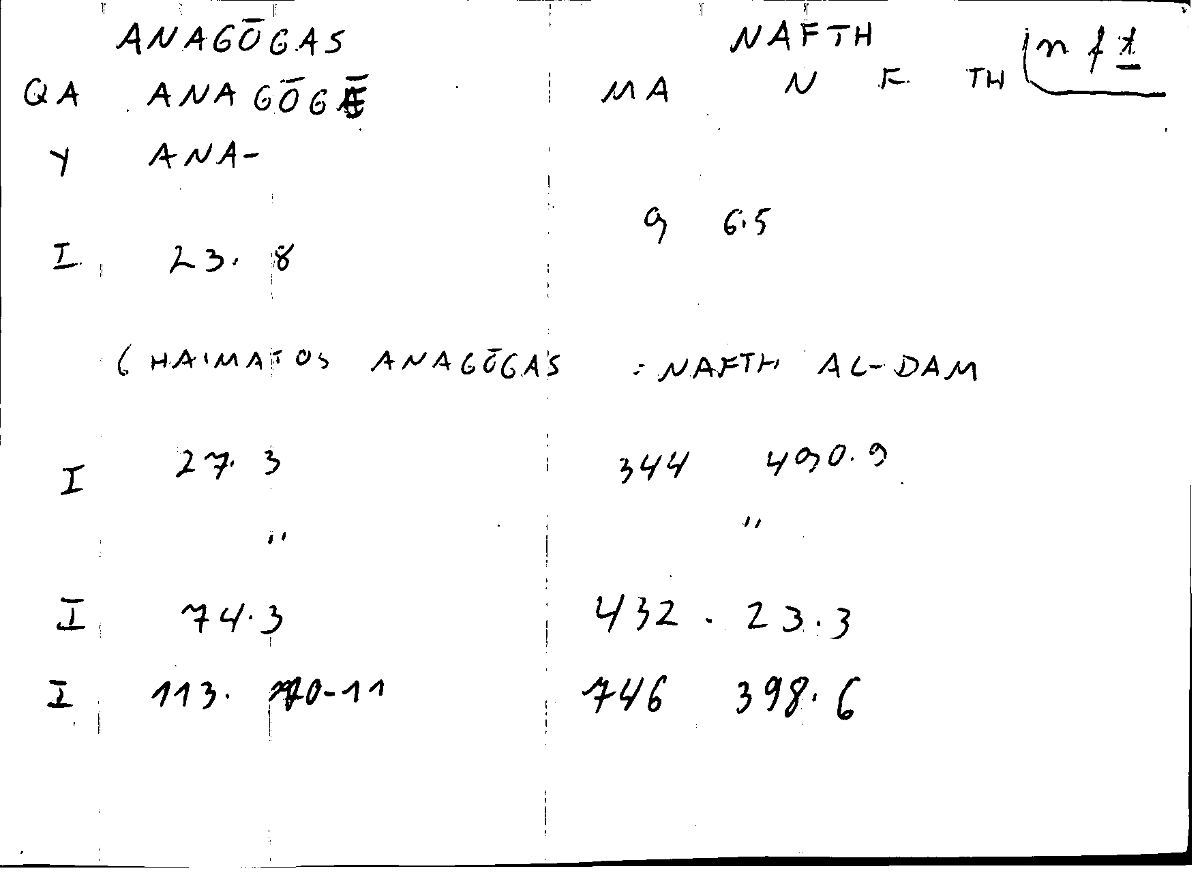 ANAGŌGAS NAFTH
QA ANAGŌGĒ MA N F TH n f ṯ
Y ANA-
9 6.5
I 23. 8
( HAIMATOS ANAGŌGAS = NAFTH AL-DAM
I 27. 3 344 490.9
" "
I 74.3 432 . 23.3
I 113. 10-11 746 398.6